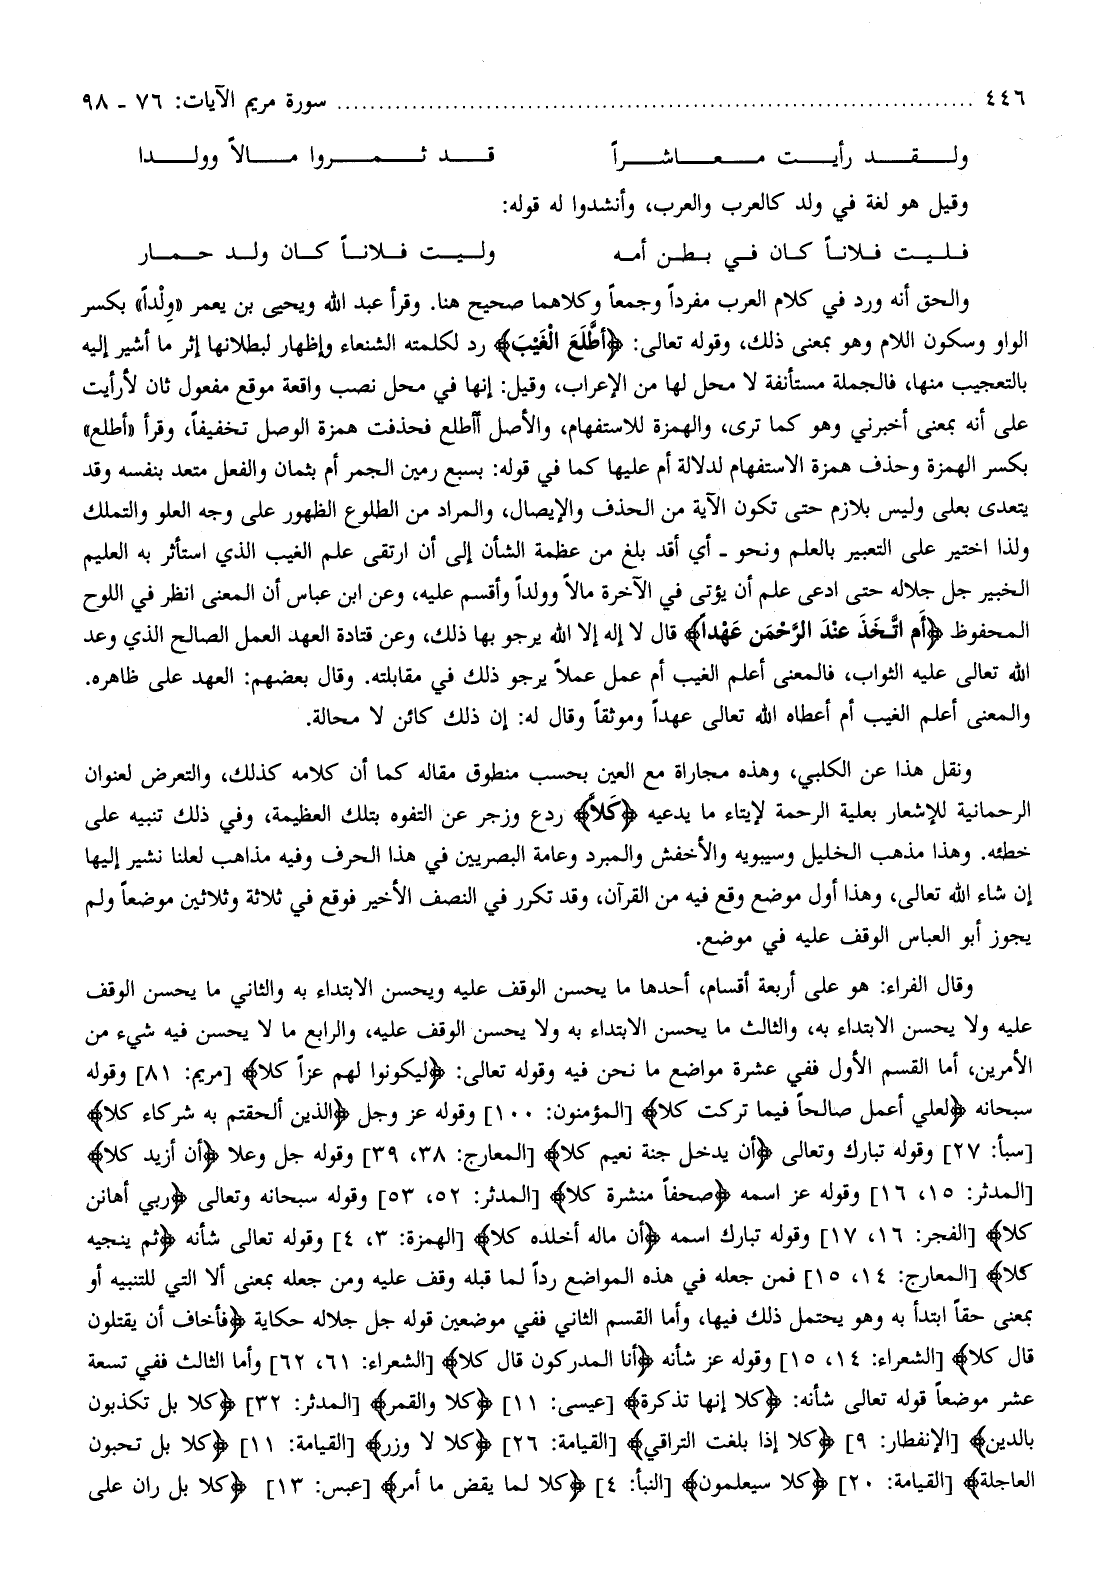 ٤٤٦ ........................ سورة مريم الآيات: ٧٦ ـ ٩٨
ولـقـد رأيـت مـعـاشـراً قـد ثـمـروا مـالاً وولـدا
وقيل هو لغة في ولد كالعرب والعرب، وأنشدوا له قوله:
فـليت فـلانـاً كـان فـي بـطـن أمـه ولـيـت فـلانـاً كـان ولـد حـمـار
والحق أنه ورد في كلام العرب مفرداً وجمعاً وكلاهما صحيح هنا. وقرأ عبد الله ويحيى بن يعمر «وِلْداً» بكسر
الواو وسكون اللام وهو بمعنى ذلك، وقوله تعالى: ﴿أطَّلَعَ الْغَيْبَ﴾ رد لكلمته الشنعاء وإظهار لبطلانها إثر ما أشير إليه
بالتعجيب منها، فالجملة مستأنفة لا محل لها من الإعراب، وقيل: إنها في محل نصب واقعة موقع مفعول ثان لأرأيت
على أنه بمعنى أخبرني وهو كما ترى، والهمزة للاستفهام، والأصل أأطلع فحذفت همزة الوصل تخفيفاً، وقرأ «أطلع»
بكسر الهمزة وحذف همزة الاستفهام لدلالة أم عليها كما في قوله: بسبع رمين الجمر أم بثمان والفعل متعد بنفسه وقد
يتعدى بعلى وليس بلازم حتى تكون الآية من الحذف والإيصال، والمراد من الطلوع الظهور على وجه العلو والتملك
ولذا اختير على التعبير بالعلم ونحو ـ أي أقد بلغ من عظمة الشأن إلى أن ارتقى علم الغيب الذي استأثر به العليم
الخبير جل جلاله حتى ادعى علم أن يؤتى في الآخرة مالاً وولداً وأقسم عليه، وعن ابن عباس أن المعنى انظر في اللوح
المحفوظ ﴿أَم اتَّخَذَ عنْدَ الرَّحْمَن عَهْداً﴾ قال لا إله إلا الله يرجو بها ذلك، وعن قتادة العهد العمل الصالح الذي وعد
الله تعالى عليه الثواب، فالمعنى أعلم الغيب أم عمل عملاً يرجو ذلك في مقابلته. وقال بعضهم: العهد على ظاهره.
والمعنى أعلم الغيب أم أعطاه الله تعالى عهداً وموثقاً وقال له: إن ذلك كائن لا محالة.
ونقل هذا عن الكلبي، وهذه مجاراة مع العين بحسب منطوق مقاله كما أن كلامه كذلك، والتعرض لعنوان
الرحمانية للإشعار بعلية الرحمة لإيتاء ما يدعيه ﴿كَلاَّ﴾ ردع وزجر عن التفوه بتلك العظيمة، وفي ذلك تنبيه على
خطئه. وهذا مذهب الخليل وسيبويه والأخفش والمبرد وعامة البصريين في هذا الحرف وفيه مذاهب لعلنا نشير إليها
إن شاء الله تعالى، وهذا أول موضع وقع فيه من القرآن، وقد تكرر في النصف الأخير فوقع في ثلاثة وثلاثين موضعاً ولم
يجوز أبو العباس الوقف عليه في موضع.
وقال الفراء: هو على أربعة أقسام، أحدها ما يحسن الوقف عليه ويحسن الابتداء به والثاني ما يحسن الوقف
عليه ولا يحسن الابتداء به، والثالث ما يحسن الابتداء به ولا يحسن الوقف عليه، والرابع ما لا يحسن فيه شيء من
الأمرين، أما القسم الأول ففي عشرة مواضع ما نحن فيه وقوله تعالى: ﴿ليكونوا لهم عزاً كلا﴾ [مريم: ٨١] وقوله
سبحانه ﴿لعلي أعمل صالحاً فيما تركت كلا﴾ [المؤمنون: ١٠٠] وقوله عز وجل ﴿الذين ألحقتم به شركاء كلا﴾
[سبأ: ٢٧] وقوله تبارك وتعالى ﴿أن يدخل جنة نعيم كلا﴾ [المعارج: ٣٨، ٣٩] وقوله جل وعلا ﴿أن أزيد كلا﴾
[المدثر: ١٥، ١٦] وقوله عز اسمه ﴿صحفاً منشرة كلا﴾ [المدثر: ٥٢، ٥٣] وقوله سبحانه وتعالى ﴿ربي أهانن
كلا﴾ [الفجر: ١٦، ١٧] وقوله تبارك اسمه ﴿أن ماله أخلده كلا﴾ [الهمزة: ٣، ٤] وقوله تعالى شأنه ﴿ثم ينجيه
كلا﴾ [المعارج: ١٤، ١٥] فمن جعله في هذه المواضع رداً لما قبله وقف عليه ومن جعله بمعنى ألا التي للتنبيه أو
بمعنى حقاً ابتدأ به وهو يحتمل ذلك فيها، وأما القسم الثاني ففي موضعين قوله جل جلاله حكاية ﴿فأخاف أن يقتلون
قال كلا﴾ [الشعراء: ١٤، ١٥] وقوله عز شأنه ﴿أنا المدركون قال كلا﴾ [الشعراء: ٦١، ٦٢] وأما الثالث ففي تسعة
عشر موضعاً قوله تعالى شأنه: ﴿كلا إنها تذكرة﴾ [عيسى: ١١] ﴿كلا والقمر﴾ [المدثر: ٣٢] ﴿كلا بل تكذبون
بالدين﴾ [الإنفطار: ٩] ﴿كلا إذا بلغت التراقي﴾ [القيامة: ٢٦] ﴿كلا لا وزر﴾ [القيامة: ١١] ﴿كلا بل تحبون
العاجلة﴾ [القيامة: ٢٠] ﴿كلا سيعلمون﴾ [النبأ: ٤] ﴿كلا لما يقض ما أمر﴾ [عبس: ١٣] ﴿كلا بل ران على